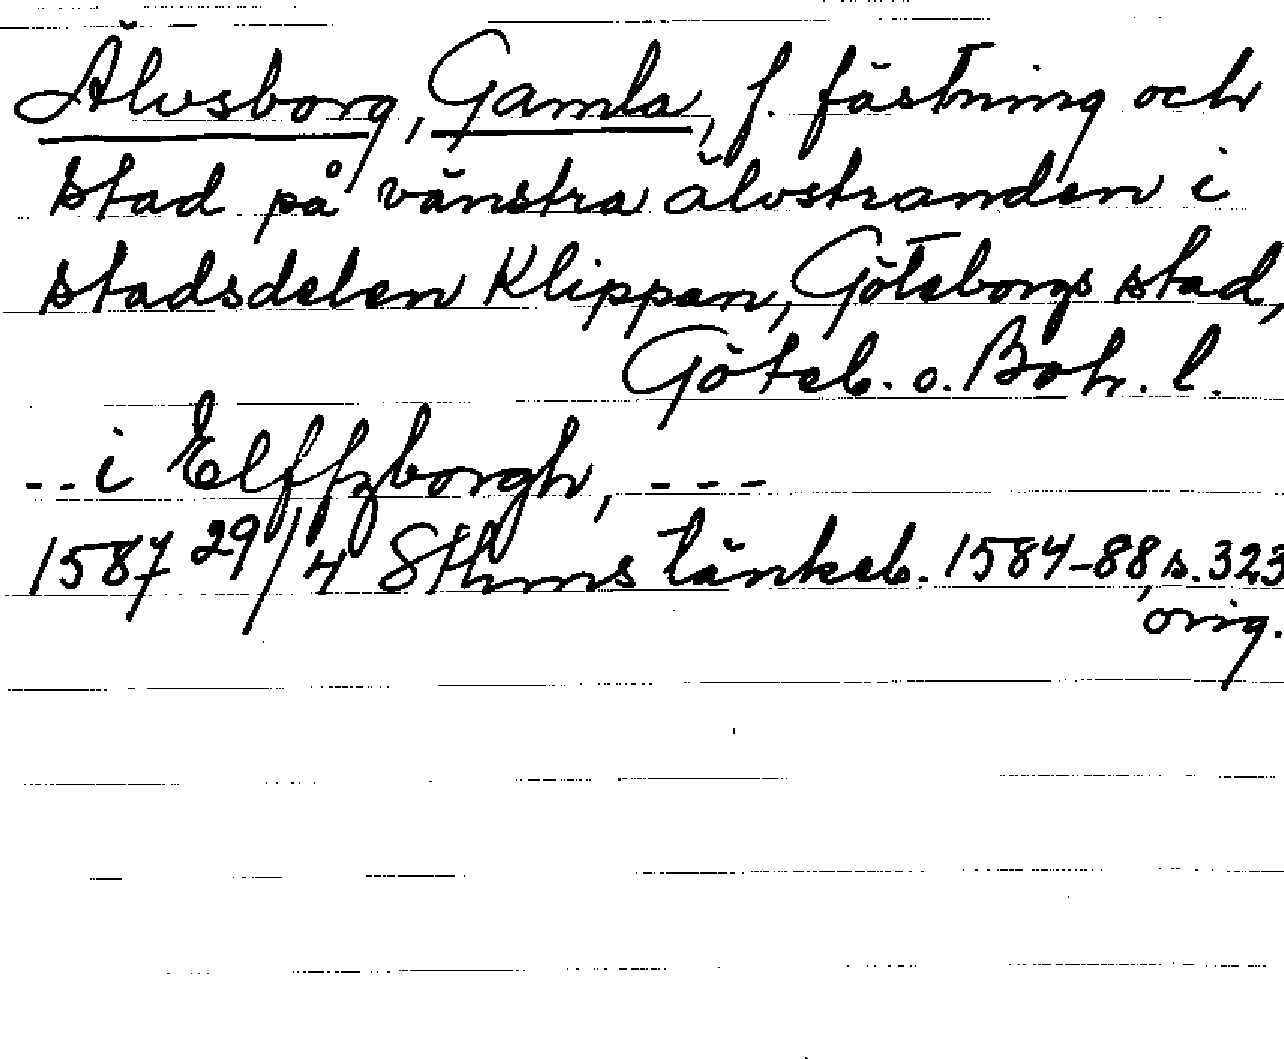 Älvsborg, Gamla, f. fästning och
stad på vänstra älvstranden i
stadsdelen Klippan, Göteborgs stad,
Göteb. o. Boh. l.
-- i Elffzborgh, ---
1587 29/4 Sthms tänkeb. 1584-88, s. 323
orig.